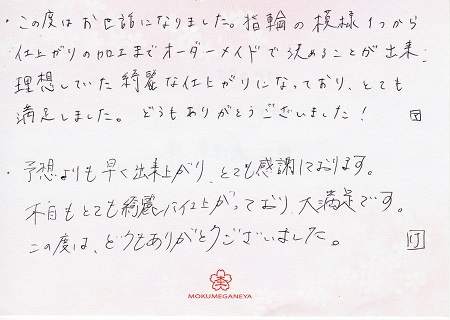 ・この度はお世話になりました。指輪の模様1つから
仕上がりの加工までオーダーメイドで決めることが出来、
理想していた綺麗な仕上がりになっており、とても
満足しました。どうもありがとうございました!
・予想よりも早く出来上がり、とても感謝しております。
木目もとても綺麗に仕上がっており、大満足です。
この度は、どうもありがとうございました。
MOKUMEGANEYA